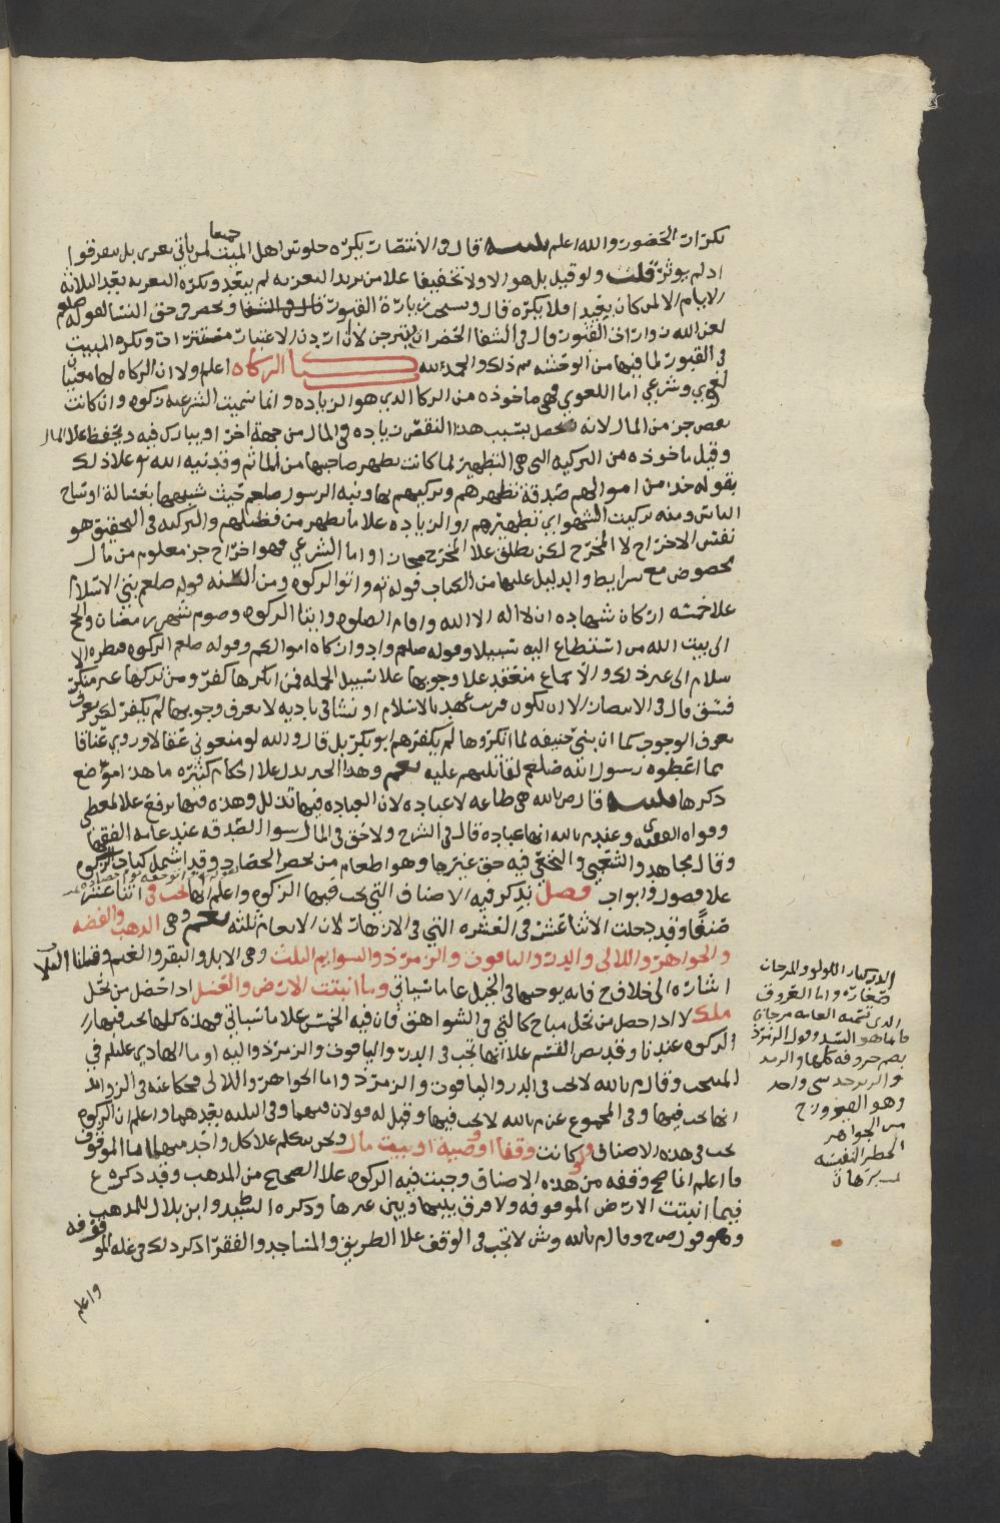 تكرار الحضور والله اعلم قال في الانتصار يكره جلوس اهل الميت جميعا لمن ياتي يعزي بل يتفرقوا
اذ لم يوثر قلت ولو قيل بل هو الاولا تخفيفا علا من يريد التعزيه لم يبعد وتكره التعزيه بعد الثلاثة
الايام الا لمن كان بعيدا فلا يكره قال ويستحب زيارة القبور ويحصر في حق النسا لقوله صلعم
لعن الله زوارات القبور وقال في الشفا
في القبور لما فيها من الوحشه تم ذلك والحمد لله كتاب الزكاه اعلم ولا ان الزكاه لها معنيان
لغوي وشرعي اما اللغوي فهي ماخوذه من الزكا الذي هو الزياده وانما سميت الشرعيه زكوه وان كانت
بعض جز من المال لانه يحصل بسبب هذا النقص زياده في المال من جهة اخرا او يبارك فيه ويحفظ علا المال
وقيل ماخوذه من التزكيه التي هي التطهير لما كانت تطهر صاحبها من الماثم وقد نبه الله تع علا ذلك
بقوله خذ من اموالهم صدقة تطهرهم وتزكيهم بها ونبه الرسول صلعم حيث شبهها بغسالة اوساخ
الناس ومنه تزكيت الشهود اي تطهيرهم او الزياده علا ما يطهر من فضلهم والتزكيه في التحقيق هو
نفس الاخراج لا المخرج لكن يطلق علا المخرج مجازا واما الشرعي فهو اخراج جز معلوم من مال
مخصوص مع شرايط والدليل عليها من الكتاب قوله تع واتوا الزكوه ومن السنه قوله صلعم بني الاسلام
علا خمسه اركان شهاده ان لا اله الا الله واقام الصلوه وايتا الزكوه وصوم شهر رمضان والحج
الى بيت الله من استطاع اليه سبيلا وقوله صلعم وادوا زكاه اموالكم وقوله صلعم الزكوه قنطره الا
سلام الى غير ذلك والاجماع منعقد علا وجوبها علا سبيل الجمله فمن انكرها كفر ومن تركها غير منكر
فسق قال في الانتصار الا ان يكون قريب عهد بالاسلام او نشا في باديه لا يعرف وجوبها لم يكفر لكن يعرف
يعرف الوجوب كما ان بني حنيفه لما انكروها لم يكفرهم ابو بكر بل قال والله لو منعوني عقالا وروي عناقا
مما اعطوه رسول الله صلعم لقاتلتهم عليه نعم وهذا الخبر يدل علا احكام كثيره ما هذا موضع
ذكرها قال ص بالله هي طاعه لا عباده لان العباده فيها تذلل وهذه فيها ترفع علا المعطى
وقواه الفقيه ى وعند م بالله انها عباده قال في الشرح ولا حق في المال سوا الصدقه عند عامه الفقها
وقال مجاهد والشعبي والنخعي فيه حق غيرها وهو اطعام من يحضر الحصاد وقد اشتمل كتاب الزكوه
علا فصول وابواب فصل يذكر فيه الاصناف التي تجب فيها الزكوه واعلم انها تجب في اثنا عشر
صنفا وقد دخلت الاثنا عشر في العشره التي في الازهار لان الانعام ثلثه نعم وهي الذهب والفضه
والجواهر واللالى والدر والياقوت والزمرذ والسوايم الثلث وهي الابل والبقر والغنم وقلنا الثلاث
اشاره الى خلاف ح فانه يوجبها في الخيل علا ما سياتي وما انبتت الارض والعسل اذا حصل من نحل
ملك لا اذا حصل من نحل مباح كالتي في الشواهق فان فيه الخمس علا ما سياتي فهذه كلها تجب فيها
الزكوه عندنا وقد نص القسم علا انها تجب في الدر والياقوت والزمرذ واليه اوما الهادي عليلم في
المنتخب وقال م بالله لا تجب في الدر والياقوت والزمرذ واما الجواهر واللالى فحكا عنه في الزوائد
انها تجب فيها وفي المجموع عن م بالله لا تجب فيها وقيل له قولان فيهما وفي الثلثه بعدهما واعلم ان الزكوه
تجب في هذه الاصناف ولو كانت وقفا او وصية او بيت مال ونحن نتكلم علا كل واحد منهما اما الموقوف
فاعلم انما صح وقفه من هذه الاصناف وجبت فيه الزكوه علا الصحيح من المذهب وقد ذكره ع
فيما انبتت الارض الموقوفه ولا فرق بينها وبين غيرها وذكره السيد وابن بلال للمذهب
وهو قول ص ح وقال م بالله وش لا تجب في الوقف علا الطريق والمساجد والفقرا ذكر ذلك في غله الموقوفه
واعلم
الدر كبار اللولو والمرجان
صغاره واما العروف
الذي تسميه العامه مرجان
فانما هو السد وقول الزمرذ
بضم حروفه كلها والزمرد
والزبرجد شي واحد
وهو الفيروزج
من الجواهر
الخطر النفيسه
برهان